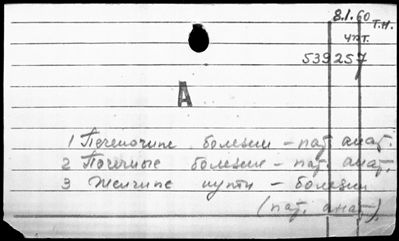 8.1.60
т.н.
чит.
539257
А
1 Печеночные болезни – пат. анат.
2 Почечные болезни – пат. анат.
3 Желчные пути – болезни
(пат. анат.)